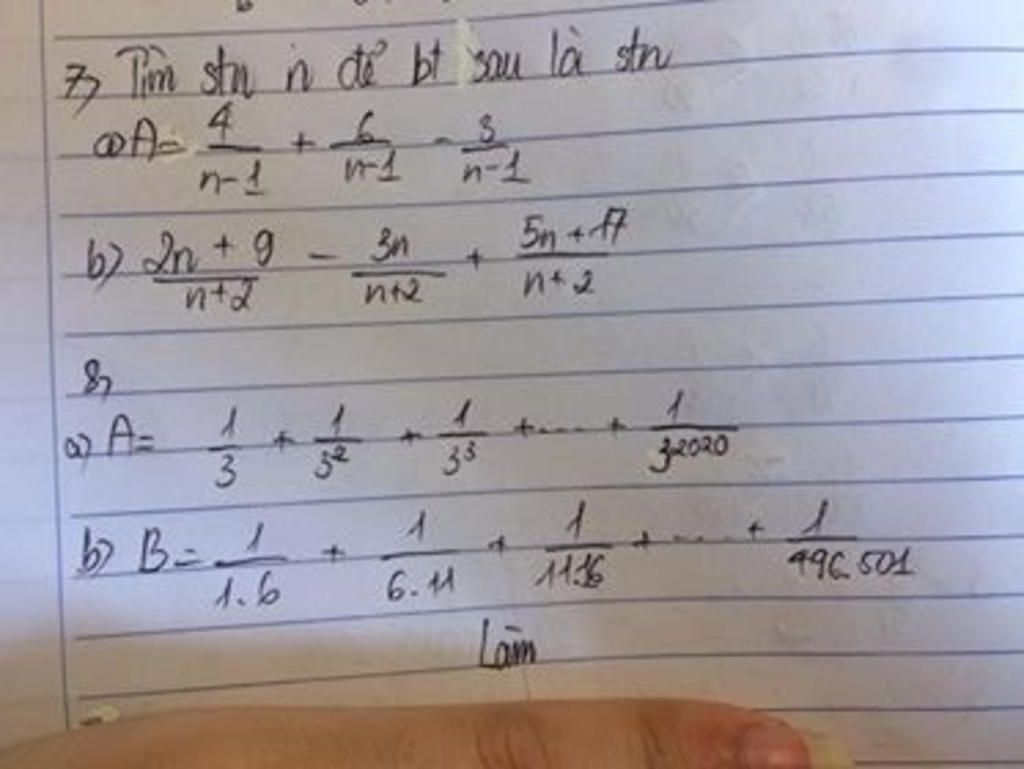 7, Tìm stn n để bt sau là stn
a) A = 4/(n-1) + 6/(n-1) - 3/(n-1)
b) (2n + 9)/(n+2) - 3n/(n+2) + (5n + 17)/(n+2)
8,
a) A = 1/3 + 1/3² + 1/3³ + .... + 1/3²⁰²⁰
b) B = 1/1.6 + 1/6.11 + 1/11.16 + .... + 1/496.501
Làm